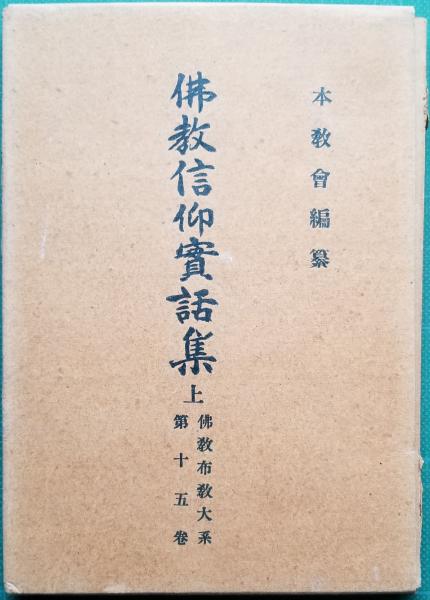 本教會編纂
佛教信仰實話集 上
佛教布教大系
第十五卷